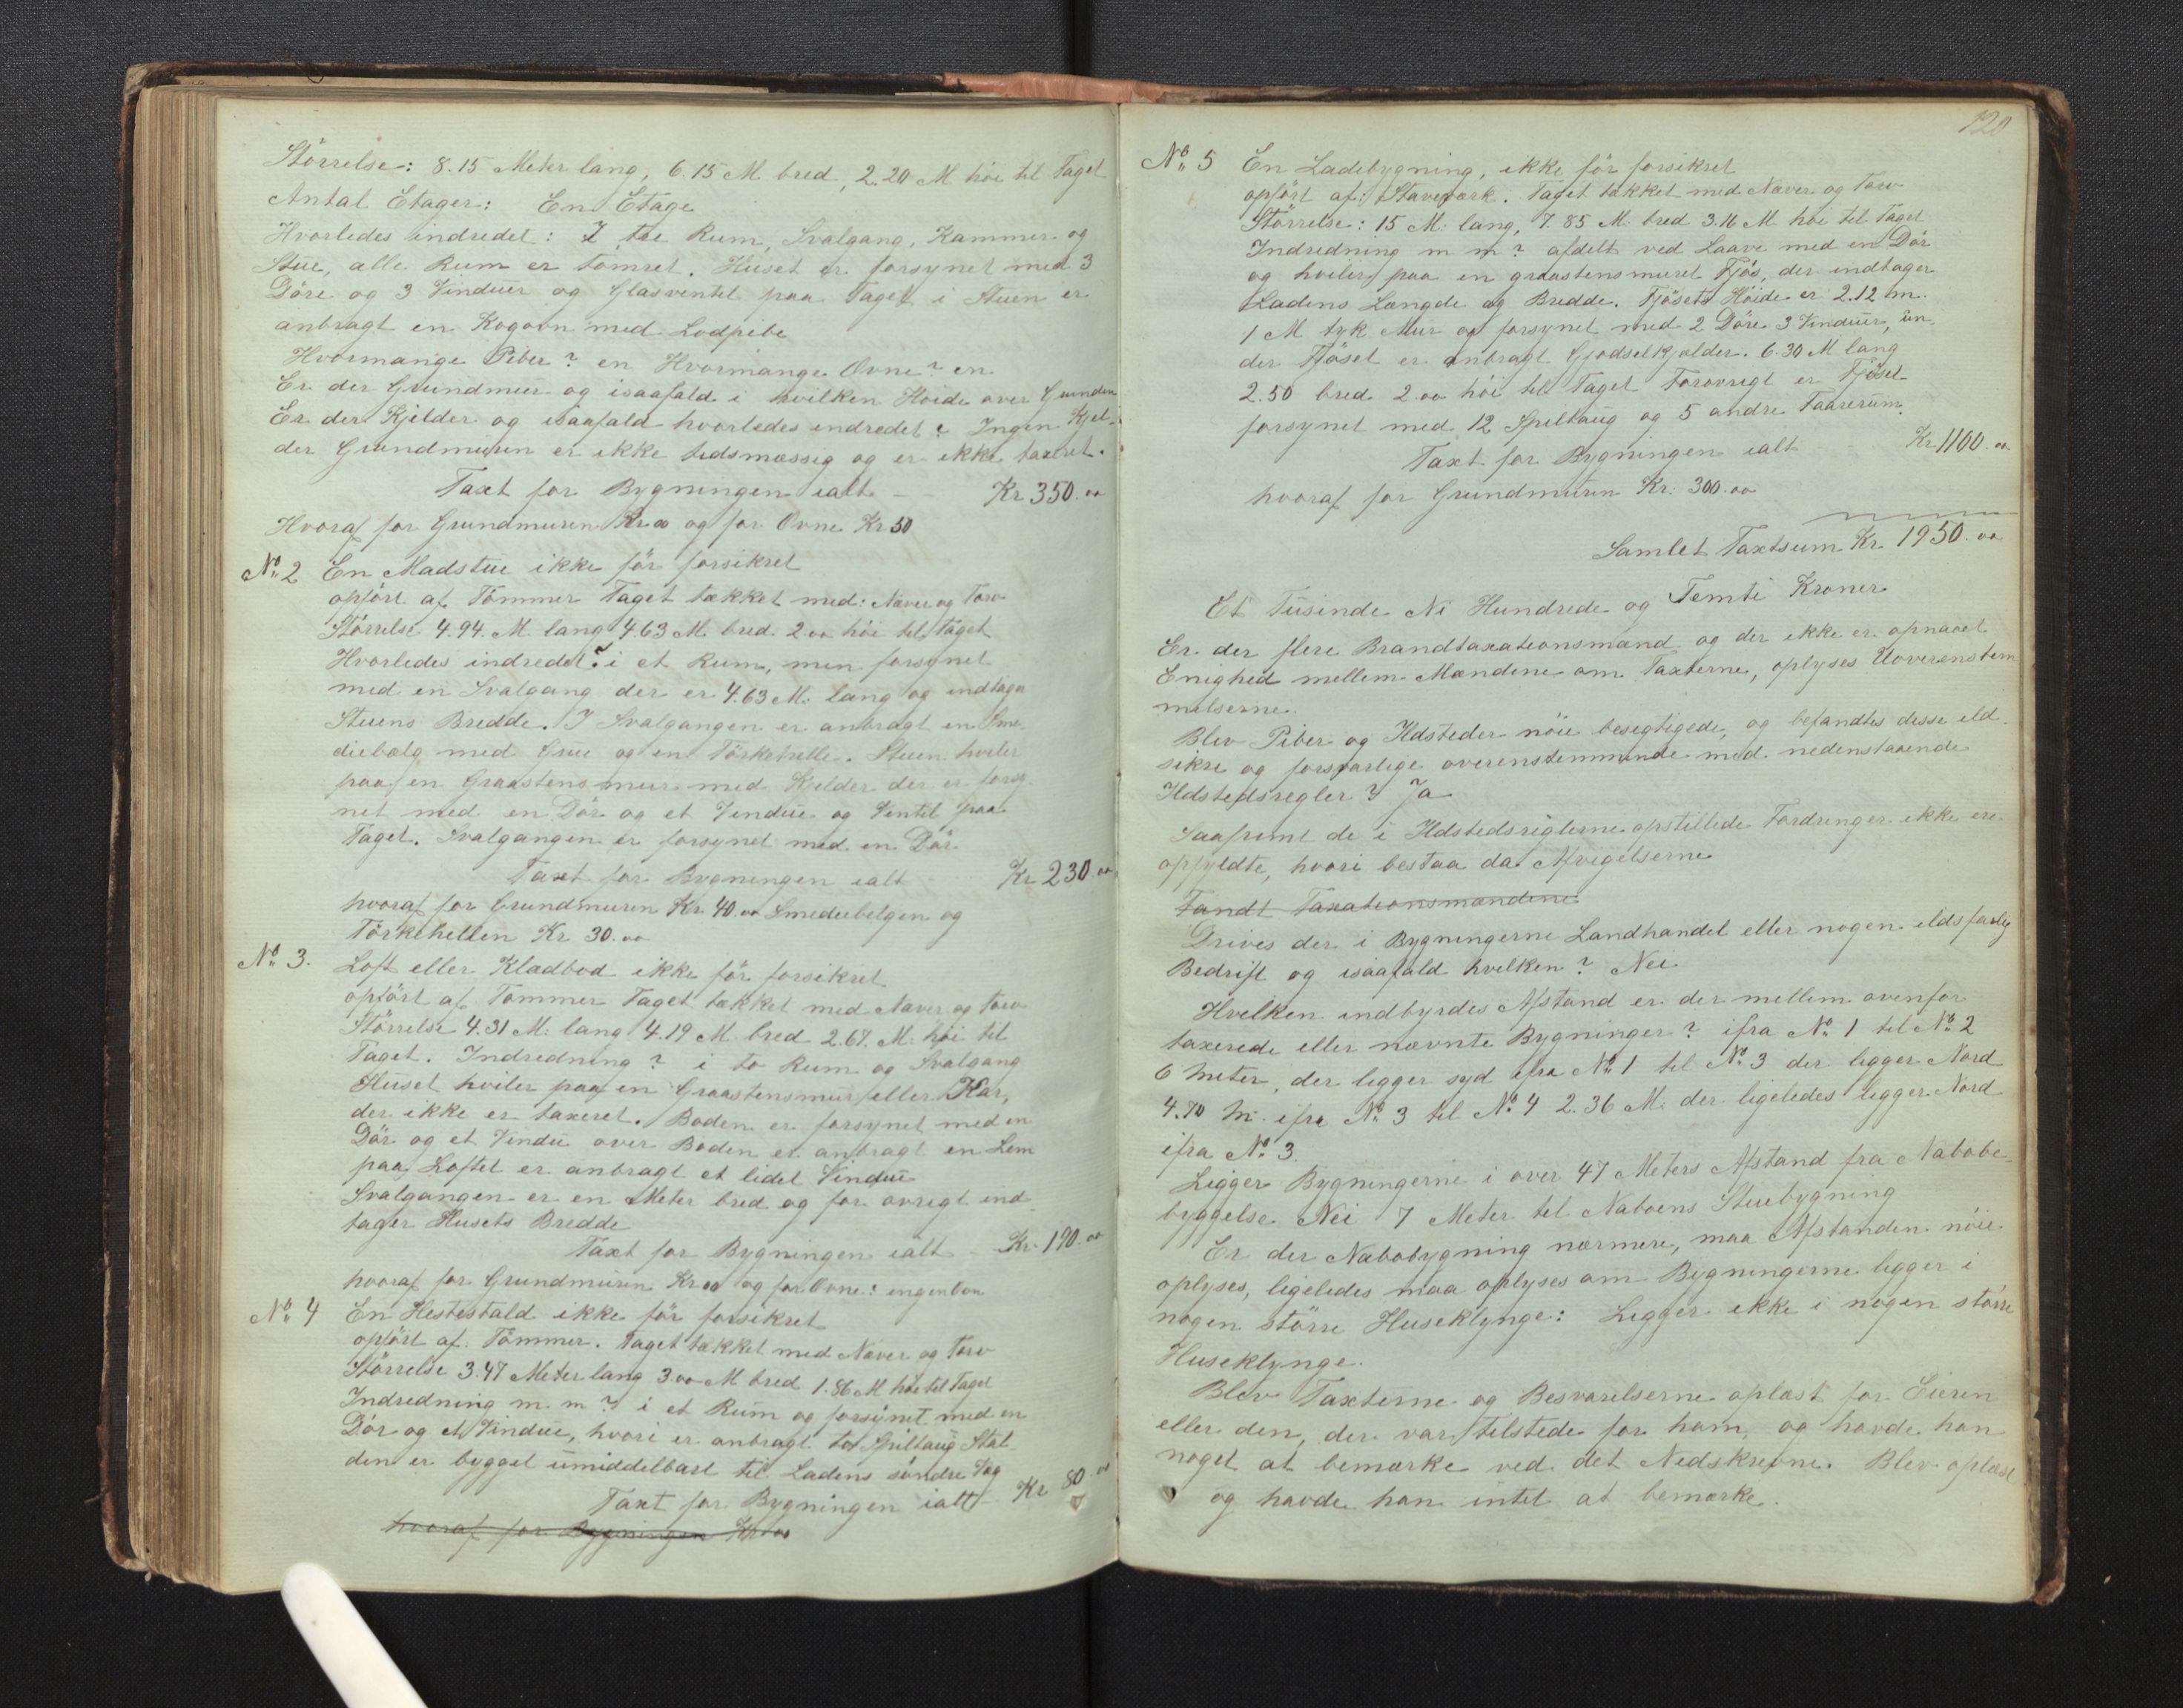 Störrelse: 8.15 Meter lang, 6.15 M bred, 2.20 M höi til Taget
Antal Etager: En Etage
Hvorledes indredet: I tre Rum, Svalgang, Kammer og
Stue, alle Rum er tømret. Huset er forsynet med 3
Döre og 3 Vinduer og Glasventil paa Taget i Stuen er
anbragt en Kogovn med Lodpibe
Hvormange Piber? en Hvormange Ovne? en
Er der Grundmur og isaafald i hvilken Höide over Grunden
Er der Kjelder og isaafald hvorledes indredet? Ingen Kjel-
der Grundmuren er ikke tidsmæssig og er ikke taxeret.
Taxt for Bygningen ialt – – Kr 350.00
Hvoraf for Grundmuren Kr 00 og for Ovne Kr 50
No 2 En Madstue ikke för forsikret
opfört af Tömmer Taget tækket med: Næver og Torv
Störrelse 4.94. M. lang 4.63 M. bred. 2.00 höi til Taget
Hvorledes indredet? i et Rum, men forsynet
med en Svalgang der er 4.63 M. lang og indtager
Stuens Bredde. I Svalgangen er anbragt en Sme-
diebælg med Grue og en Törkehelle. Stuen hviler
paa en Graastensmur med Kjelder der er forsy-
net med en Dör og et Vindue og Ventil paa
Taget. Svalgangen er forsynet med en Dör
Taxt for Bygningen ialt – Kr 230.00
hvoraf for Grundmuren Kr. 40.00 Smediebelgen og
Törkehellen Kr 30.00
No 3. Loft eller Klædbod ikke för forsikret
opfört af Tømmer Taget tækket med Næver og Torv
Störrelse 4.31 M: lang 4.19 M. bred 2.67. M. höi til
Taget. Indredning? i to Rum og Svalgang
Huset hviler paa en Graastensmur eller Kar,
der ikke er taxeret. Boden er forsynet med en
Dör og et Vindu over Boden er anbragt en Lem
paa Loftet er anbragt et lidet Vindue
Svalgangen er en Meter bred og for øvrigt ind-
tager Husets Bredde
Taxt for Bygningen ialt – Kr. 190.00
hvoraf for Grundmuren Kr 00 og for Ovne: ingen Ovn
No 4 En Hestestald ikke för forsikret
opfört af: Tömmer. Taget tækket med Næver og Torv
Störrelse 3.47 Meter lang 3.00 M bred 1.86 M höi til Taget
Indredning m. m? i et Rum og forsynet med en
Dör og et Vindue, hvori er anbragt to Spiltaug Stal-
den er bygget umiddelbart til Ladens søndre Væg
Taxt for Bygningen ialt – Kr 80.00
hvoraf for Bygningen Kr 00
120
No 5 En Ladebygning, ikke för forsikret
opfört af: Staveværk. Taget tækket med Næver og Torv
Störrelse: 15 M. lang, 7.85 M. bred 3.16 M höi til Taget
Indredning m m? afdelt ved Laave med en Dör
og hviler paa en graastensmuret Fjös, der indtager
Ladens Længde og Bredde. Fjösets Höide er 2.12 m.
1 M tyk Mur og forsynet med 2 Döre 3 Vinduer, un-
der Fjöset er anbragt Gjødselkjælder. 6.30 M lang
2.50 bred 2.00 höi til Taget Forøvrigt er Fjöset
forsynet med 12 Spiltaug og 5 andre Faarerum.
Taxt for Bygningen ialt – – Kr 1100.00
hvoraf for Grundmuren Kr: 300.00
Samlet Taxtsum Kr 1950.00
Et Tusinde Ni Hundrede og Femti Kroner
Er der flere Brandtaxationsmænd og der ikke er opnaaet
Enighed mellem Mændene om Taxterne, oplyses Uoverenstem
melserne.
Blev Piber og Ildsteder nöie besegtigede, og befandtes disse ild-
sikre og forsvarlige overenstemmende med nedenstaaende
Ildstedsregler? Ja
Saafremt de i Ildstedsreglerne opstillede Fordringer ikke ere
opfyldte, hvori bestaa da Afvigelserne
Fandt Taxationsmændene
Drives der i Bygningerne Landhandel eller nogen ildsfarlig
Bedrift og isaafald hvilken? Nei
Hvilken indbyrdes Afstand er der mellem ovenfor
taxerede eller nævnte Bygninger? ifra No 1 til No 2
6 Meter, der ligger syd ifra No 1 til No 3 der ligger Nord
4.70 M. ifra No 3 til No 4 2.36 M. der ligeledes ligger Nord
ifra No 3.
Ligger Bygningerne i over 47 Meters Afstand fra Nabobe-
byggelse Nei 7 Meter til Naboens Stuebygning
Er der Nabobygning nærmere, maa Afstanden nöie
oplyses, ligeledes maa oplyses om Bygningerne ligger i
nogen större Huseklynge: Ligger ikke i nogen større
Huseklynge.
Blev Taxterne og Besvarelserne oplæst for Eieren
eller den, der var tilstede for ham, og havde han
noget at bemærke ved det Nedskrevne. Blev oplæst
og havde han intet at bemærke.